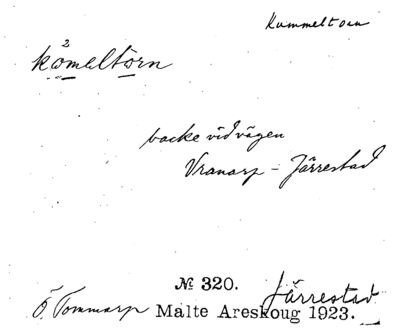 Kummeltorn
kömeltorn
backe vid vägen
Vranarp - Järrestad
№ 320. Järrestad
Ö. Tommarp Malte Areskoug 1923.